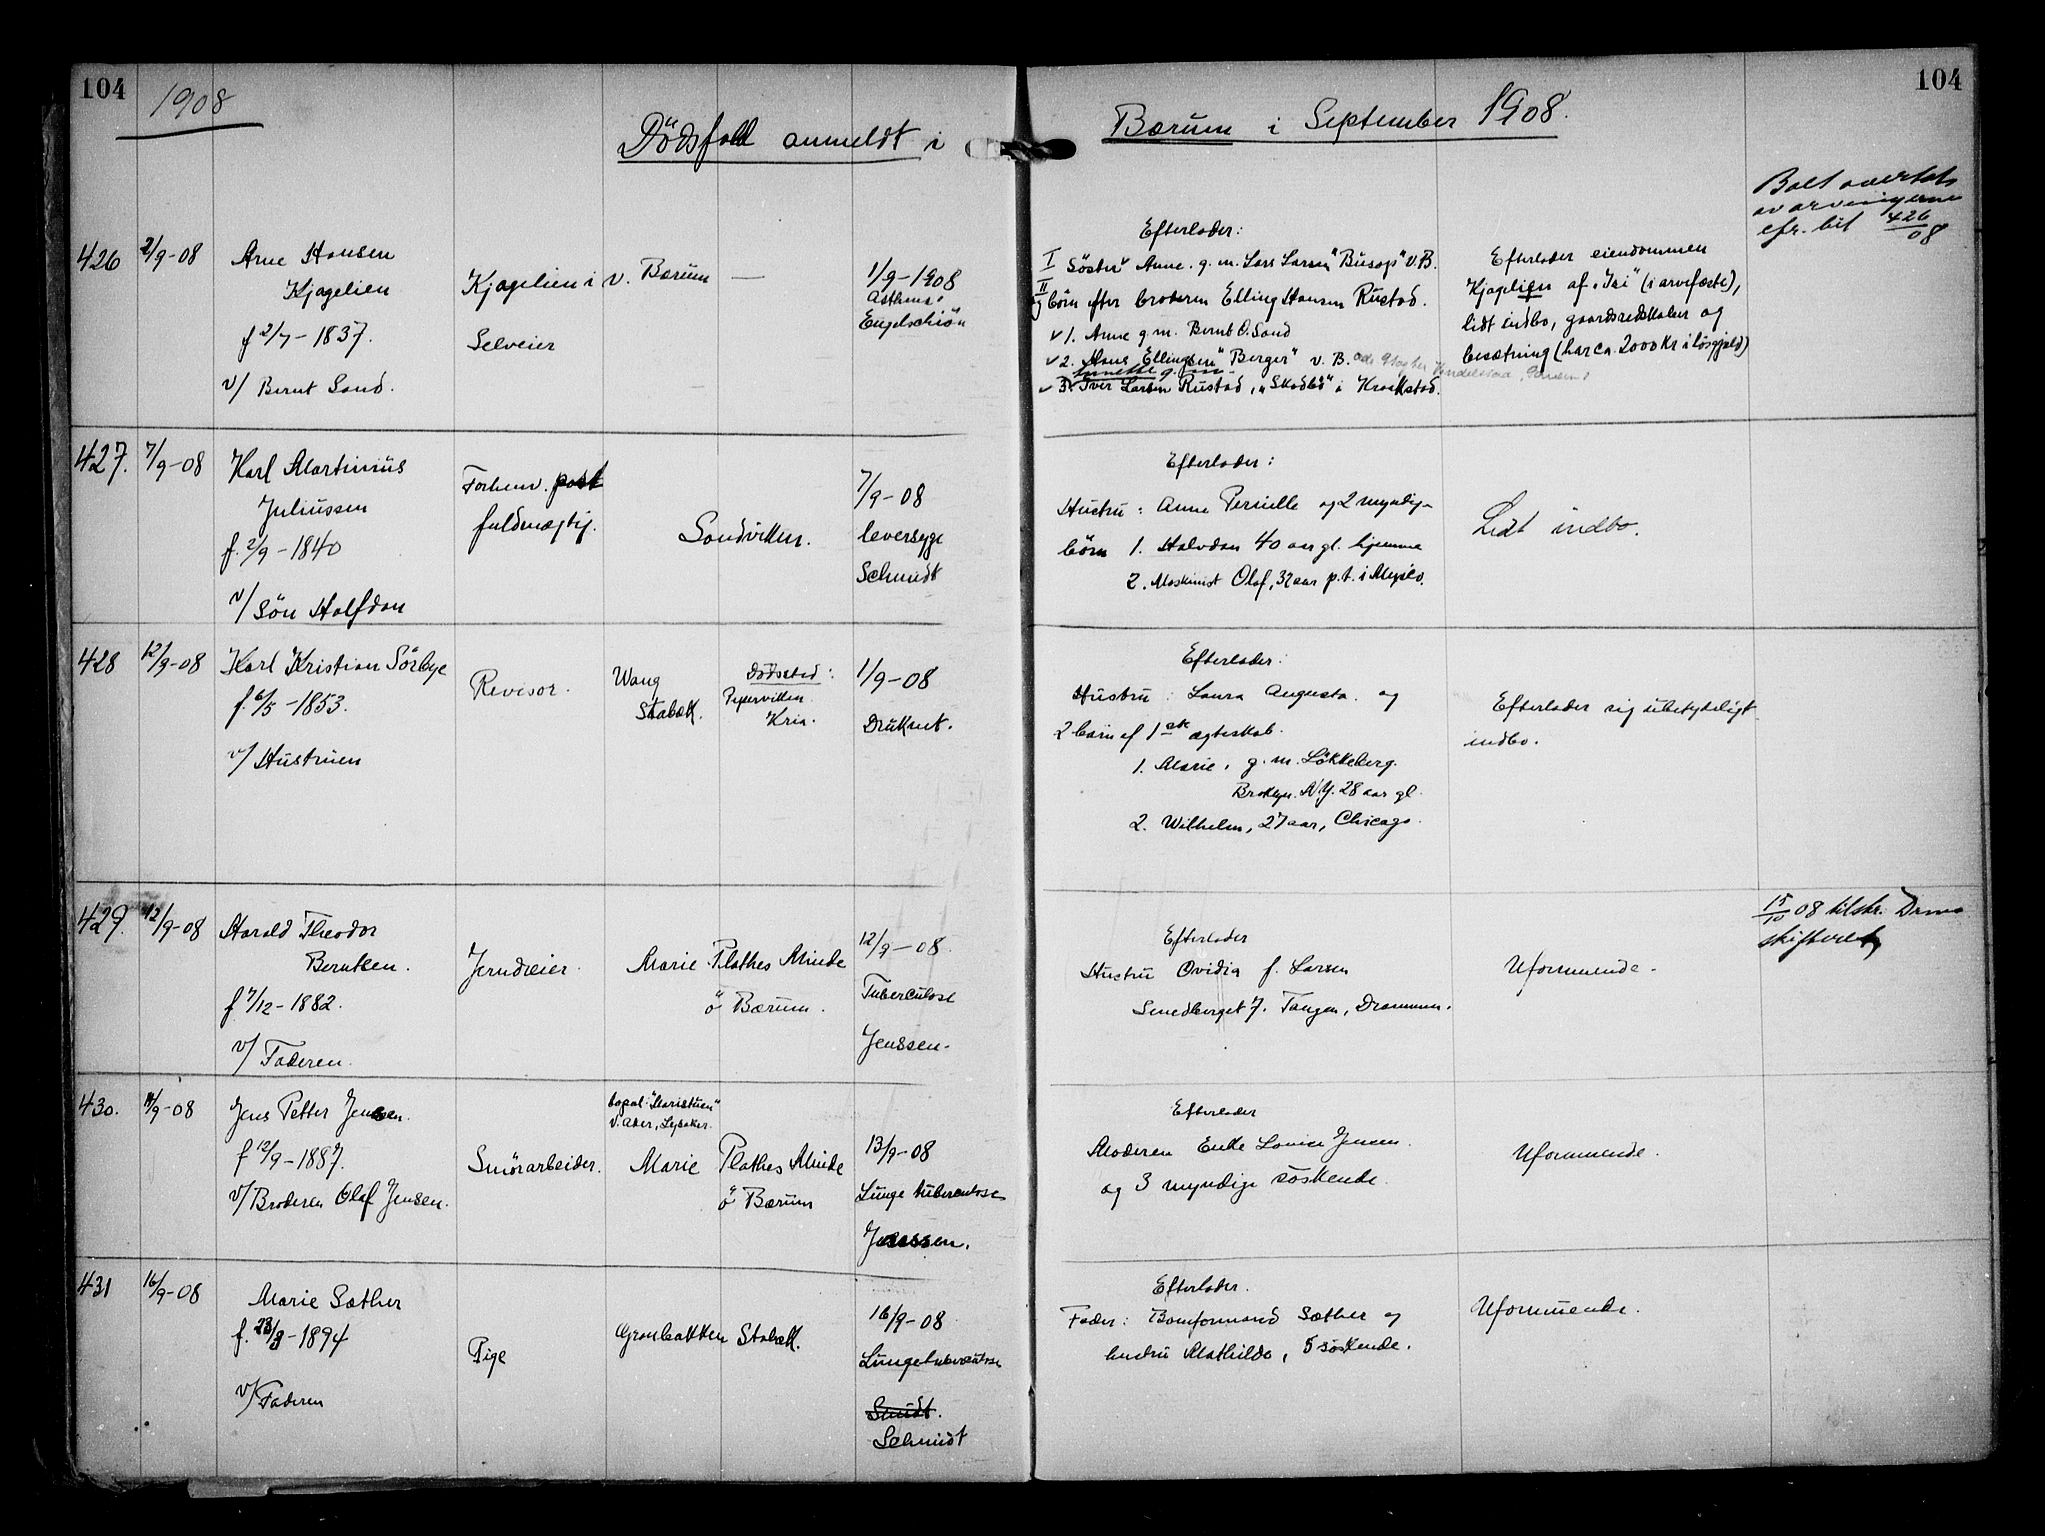 104
1908
Dödsfald anmeldt i
Bærum i September 1908.
104
Boet overtat
av arvingerne
efr. bil 426/08
426
2/9-08
Arne Hansen
Kjaglien
f 2/7-1837.
v/ Bernt Sand.
Kjaglien i V. Bærum
Selveier
1/9-1908
Asthma
Engelschiön
Efterlader:
I Söster Anne. g. m. Lars Larsen "Busop" V.B.
II
og börn efter broderen Elling Hansen Rustad.
1. Anne g m. Bernt O. Sand
2. Hans Ellingsen "Berger" V. B.
3. Iver Larsen Rustad, "Skodbö" i Krokstad.
Efterlader eiendommen
Kjaglien af "Isi" (i arvefæste),
lidt indbo, gaardsredskaber og
besætning (har ca. 2000 Kr i lösgjæld)
427.
7/9-08
Karl Martinius
Juliussen
f. 2/9-1840
v/ Sön Halfdan
Forhenv. post
fuldmægtig.
Sandviken.
7/9-08
leversyge
Schmidt
Efterlader:
Hustru: Anne Pernille og 2 myndige
börn 1. Halvdan 40 aar gl. hjemme
2. Maskinist Olaf, 32 aar p.t. i Mexico.
Lidt indbo.
428
12/9-08
Karl Kristian Sörbye
f. 6/5-1853.
v/ Hustruen
Revisor.
Wang
Stabæk.
Dödssted:
Piperviken
Kria.
1/9-08
Druknet.
Efterlader:
Hustru: Laura Augusta. og
2 börn af 1ste ægteskab.
1. Marie, g. m. Lökkeberg.
Broklyn. N.Y. 28 aar gl.
2. Wilhelm, 27 aar, Chicago.
Efterlader sig ubetydeligt
indbo.
429.
12/9-08
Harald Theodor
Berntsen.
f 7/12-1882.
v/ Faderen.
Jerndreier.
Marie Plathes Minde
ö Bærum.
12/9-08.
Tuberculose
Jenssen.
Efterlader
Hustru Ovidia f. Larsen
Smedberget 7. Tangen, Drammen.
Uformuende.
15/10 08 tilskr. Drms
skifteret
430.
14/9-08
Jens Petter Jensen.
f 12/9-1887.
v/ Broderen Olaf Jensen.
Smörarbeider.
bopæl: "Maristuen"
V. Aker, Lysaker.
Marie Plathes Minde
ö Bærum
13/9-08
Lunge tuberculose
Jenssen.
Efterlader
Moderen Enke Lovise Jensen.
og 3 myndige söskende.
Uformuende.
431
16/9-08
Marie Sæther
f. 23/3-1894
v/ Faderen
Pige
Granbakken Stabæk.
16/9-08
Lungetuberculose
Smidt.
Schmidt
Efterlader.
Fader: Bomformand Sæther og
hustru Mathilde, 5 söskende.
Uformuende.